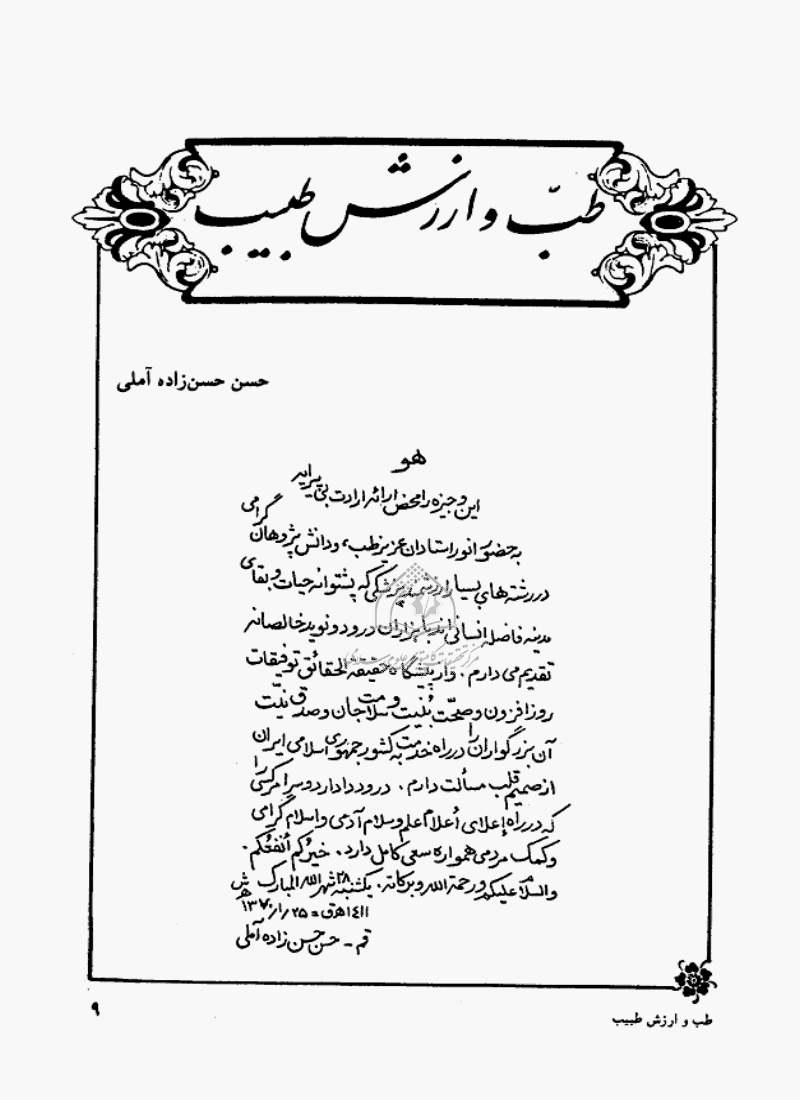 طبّ و ارزش طبیب
حسن حسن‌زاده آملی
هو
این وجیزه را محض ارائه ارادت بی پیرایه
به حضور انور استادان عزیز طب، و دانش پژوهان گرامی
در رشته‌های بسیار ارزشمند پزشکی که پشتوانه حیات و بقای
مدینه فاضله انسانی‌اند با هزاران درود و نوید خالصانه
تقدیم می‌دارم. و از پیشگاه حقیقة الحقائق توفیقات
روزافزون و صحّت بُنیت و سلامت جان و صدق نیّت
آن بزرگواران را در راه خدمت به کشور جمهوری اسلامی ایران
از صمیم قلب مسألت دارم. درود دادار دو سرا مر کسی را
که در راه إعلای أعلام علم و سلام آدمی و اسلام گرامی
و کمک مردمی همواره سعی کامل دارد. خیرُکم أنفعُکم.
والسلام علیکم و رحمة الله و برکاته. یکشنبه ۲۸ شهر الله المبارک
۱۴۱۱ هـ ق = ۲۵/۱/۱۳۷۰ هـ ش
قم - حسن حسن زاده آملی
طب و ارزش طبیب
۹